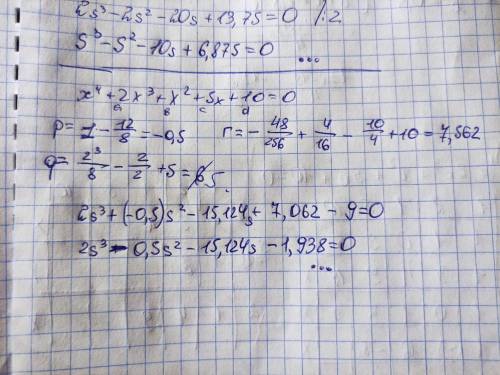 2s³-2s²-20s+13,75=0 /:2
s³-s²-10s+6,875=0 ...
x⁴+2x³+x²+5x+10=0
a b c d
p=1-12/8=-0,5 r=-48/256+4/16-10/4+10=7,562
q=2³/8-2/2+5=5.
2s³+(-0,5)s²-15,124s+7,062-9=0
2s³-0,5s²-15,124s-1,938=0
...